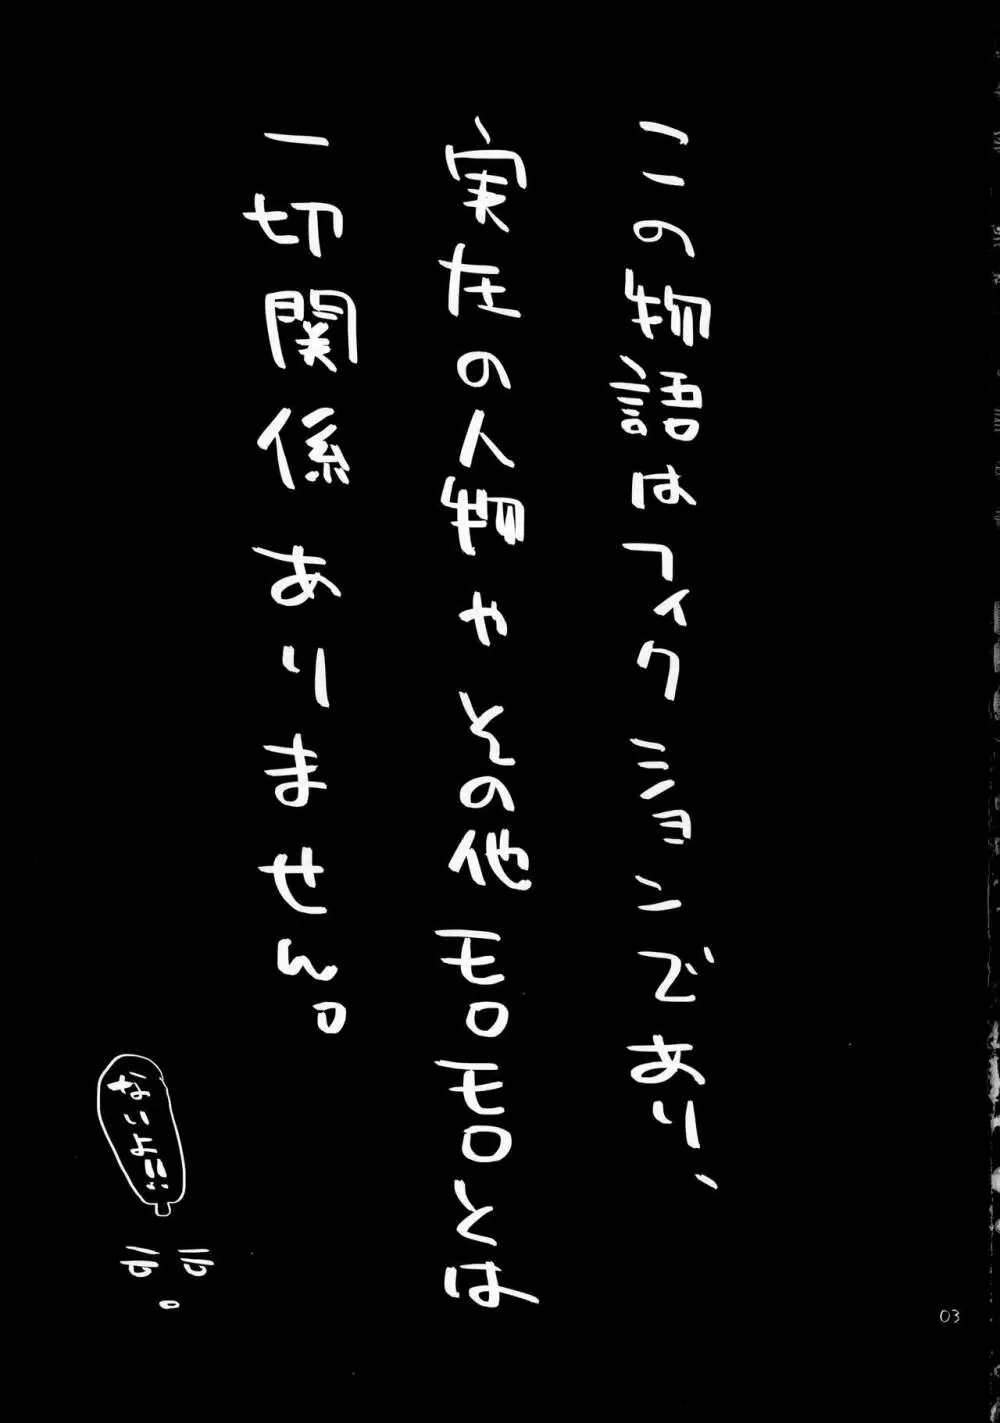 この物語はフィクションであり、
実在の人物やその他モロモロとは
一切関係ありません。
ないよ!!!
03